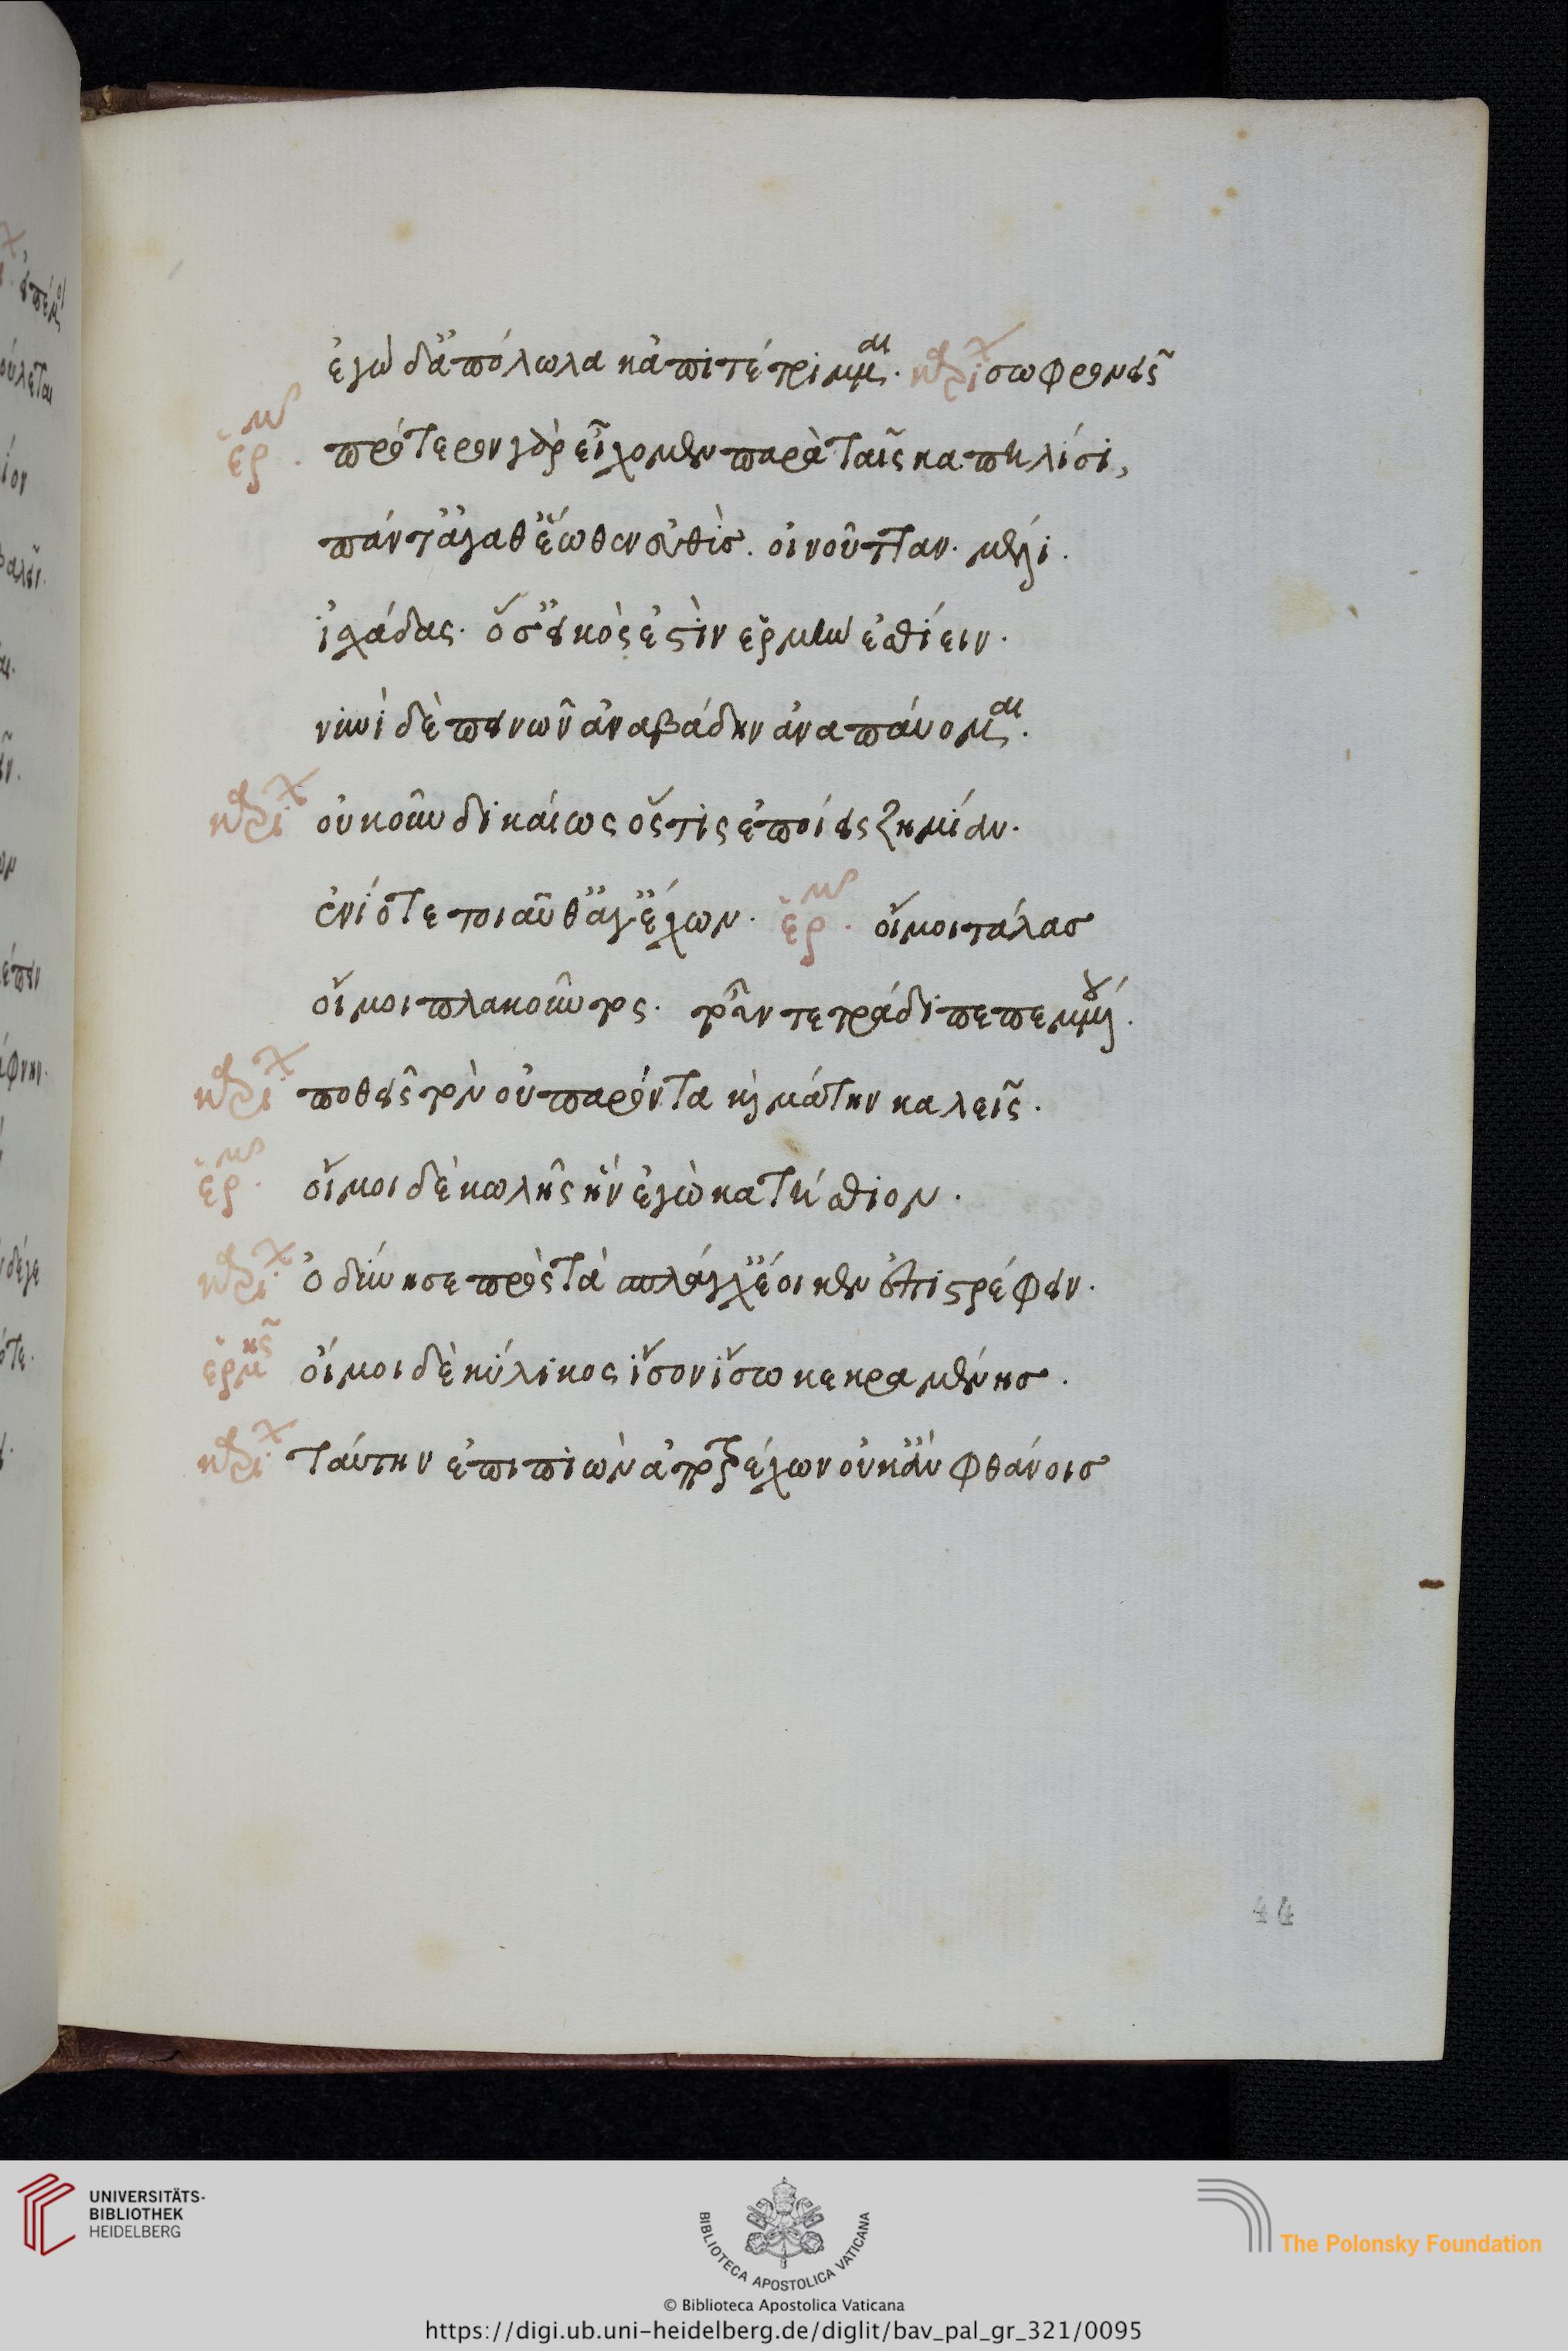 ἐγὼ δ' ἀπόλωλα κἀπιτέτριμμαι. καρί χ σωφρονεῖς
ἑρμ. πρότερον γὰρ εἶχομεν παρὰ ταῖς καπηλίσι,
πάντ' ἀγάθ' ἕωθεν εὐθὺσ. οἰνοῦτταν. μέλι.
ἰχάδας. ὅσ' εἰκός ἐστὶν ἑρμῆν ἐσθίειν.
νυνὶ δὲ πεινῶν ἀναβάδην ἀναπάυομαι.
καρί χ οὐκοῦν δικάιως ὅςτις ἐποίεις ζημίαν.
ἐνίοτε τοιαῦθ' ἀγ' ἔχων. ἑρμ. οἴμοι τάλασ
οἴμοι πλακοῦντος. τοῦ 'ν τετράδι πεπεμμένου.
καρί χ ποθεῖς τὸν οὐ παρόντα καὶ μάτην καλεῖς.
ἑρμ. οἴμοι δὲ κωλῆς ἣν ἐγὼ κατήσθιον.
καρί χ ὀδύνη σε πρὸς τὰ σπλάγχ' ἔοικεν ἐπιστρέφειν.
ἑρμῆς οἴμοι δὲ κύλικος ἴσον ἴσω κεκραμένησ.
καρί χ ταύτην ἐπιπιὼν ἀποτρέχων οὐκ ἂν φθάνοισ
44
UNIVERSITÄTS-
BIBLIOTHEK
HEIDELBERG
BIBLIOTECA APOSTOLICA VATICANA
The Polonsky Foundation
© Biblioteca Apostolica Vaticana
https://digi.ub.uni-heidelberg.de/diglit/bav_pal_gr_321/0095